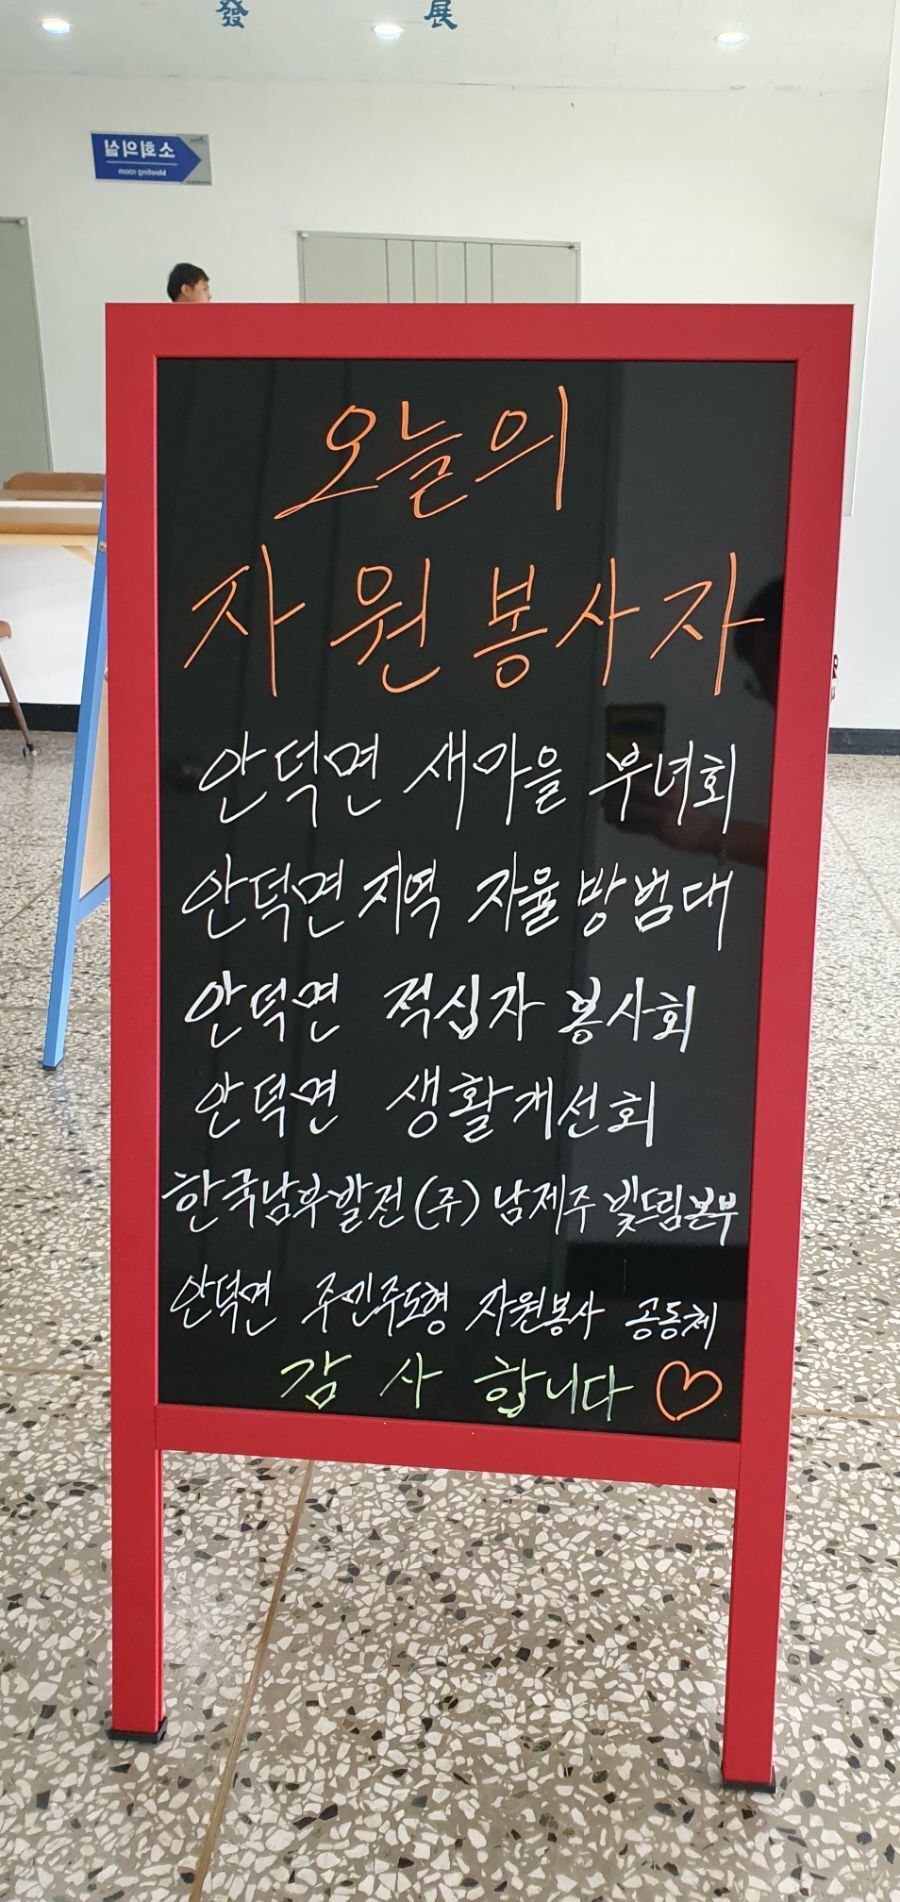 發 展
소회의실
Meeting room
오늘의
자원봉사자
안덕면 새마을 부녀회
안덕면 지역 자율방범대
안덕면 적십자 봉사회
안덕면 생활개선회
한국남부발전(주) 남제주 빛드림본부
안덕면 주민주도형 자원봉사 공동체
감사합니다♡